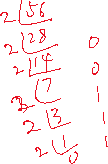 2 56
2 28 0
2 14 0
2 7 1
2 3 1
2 1 1
0